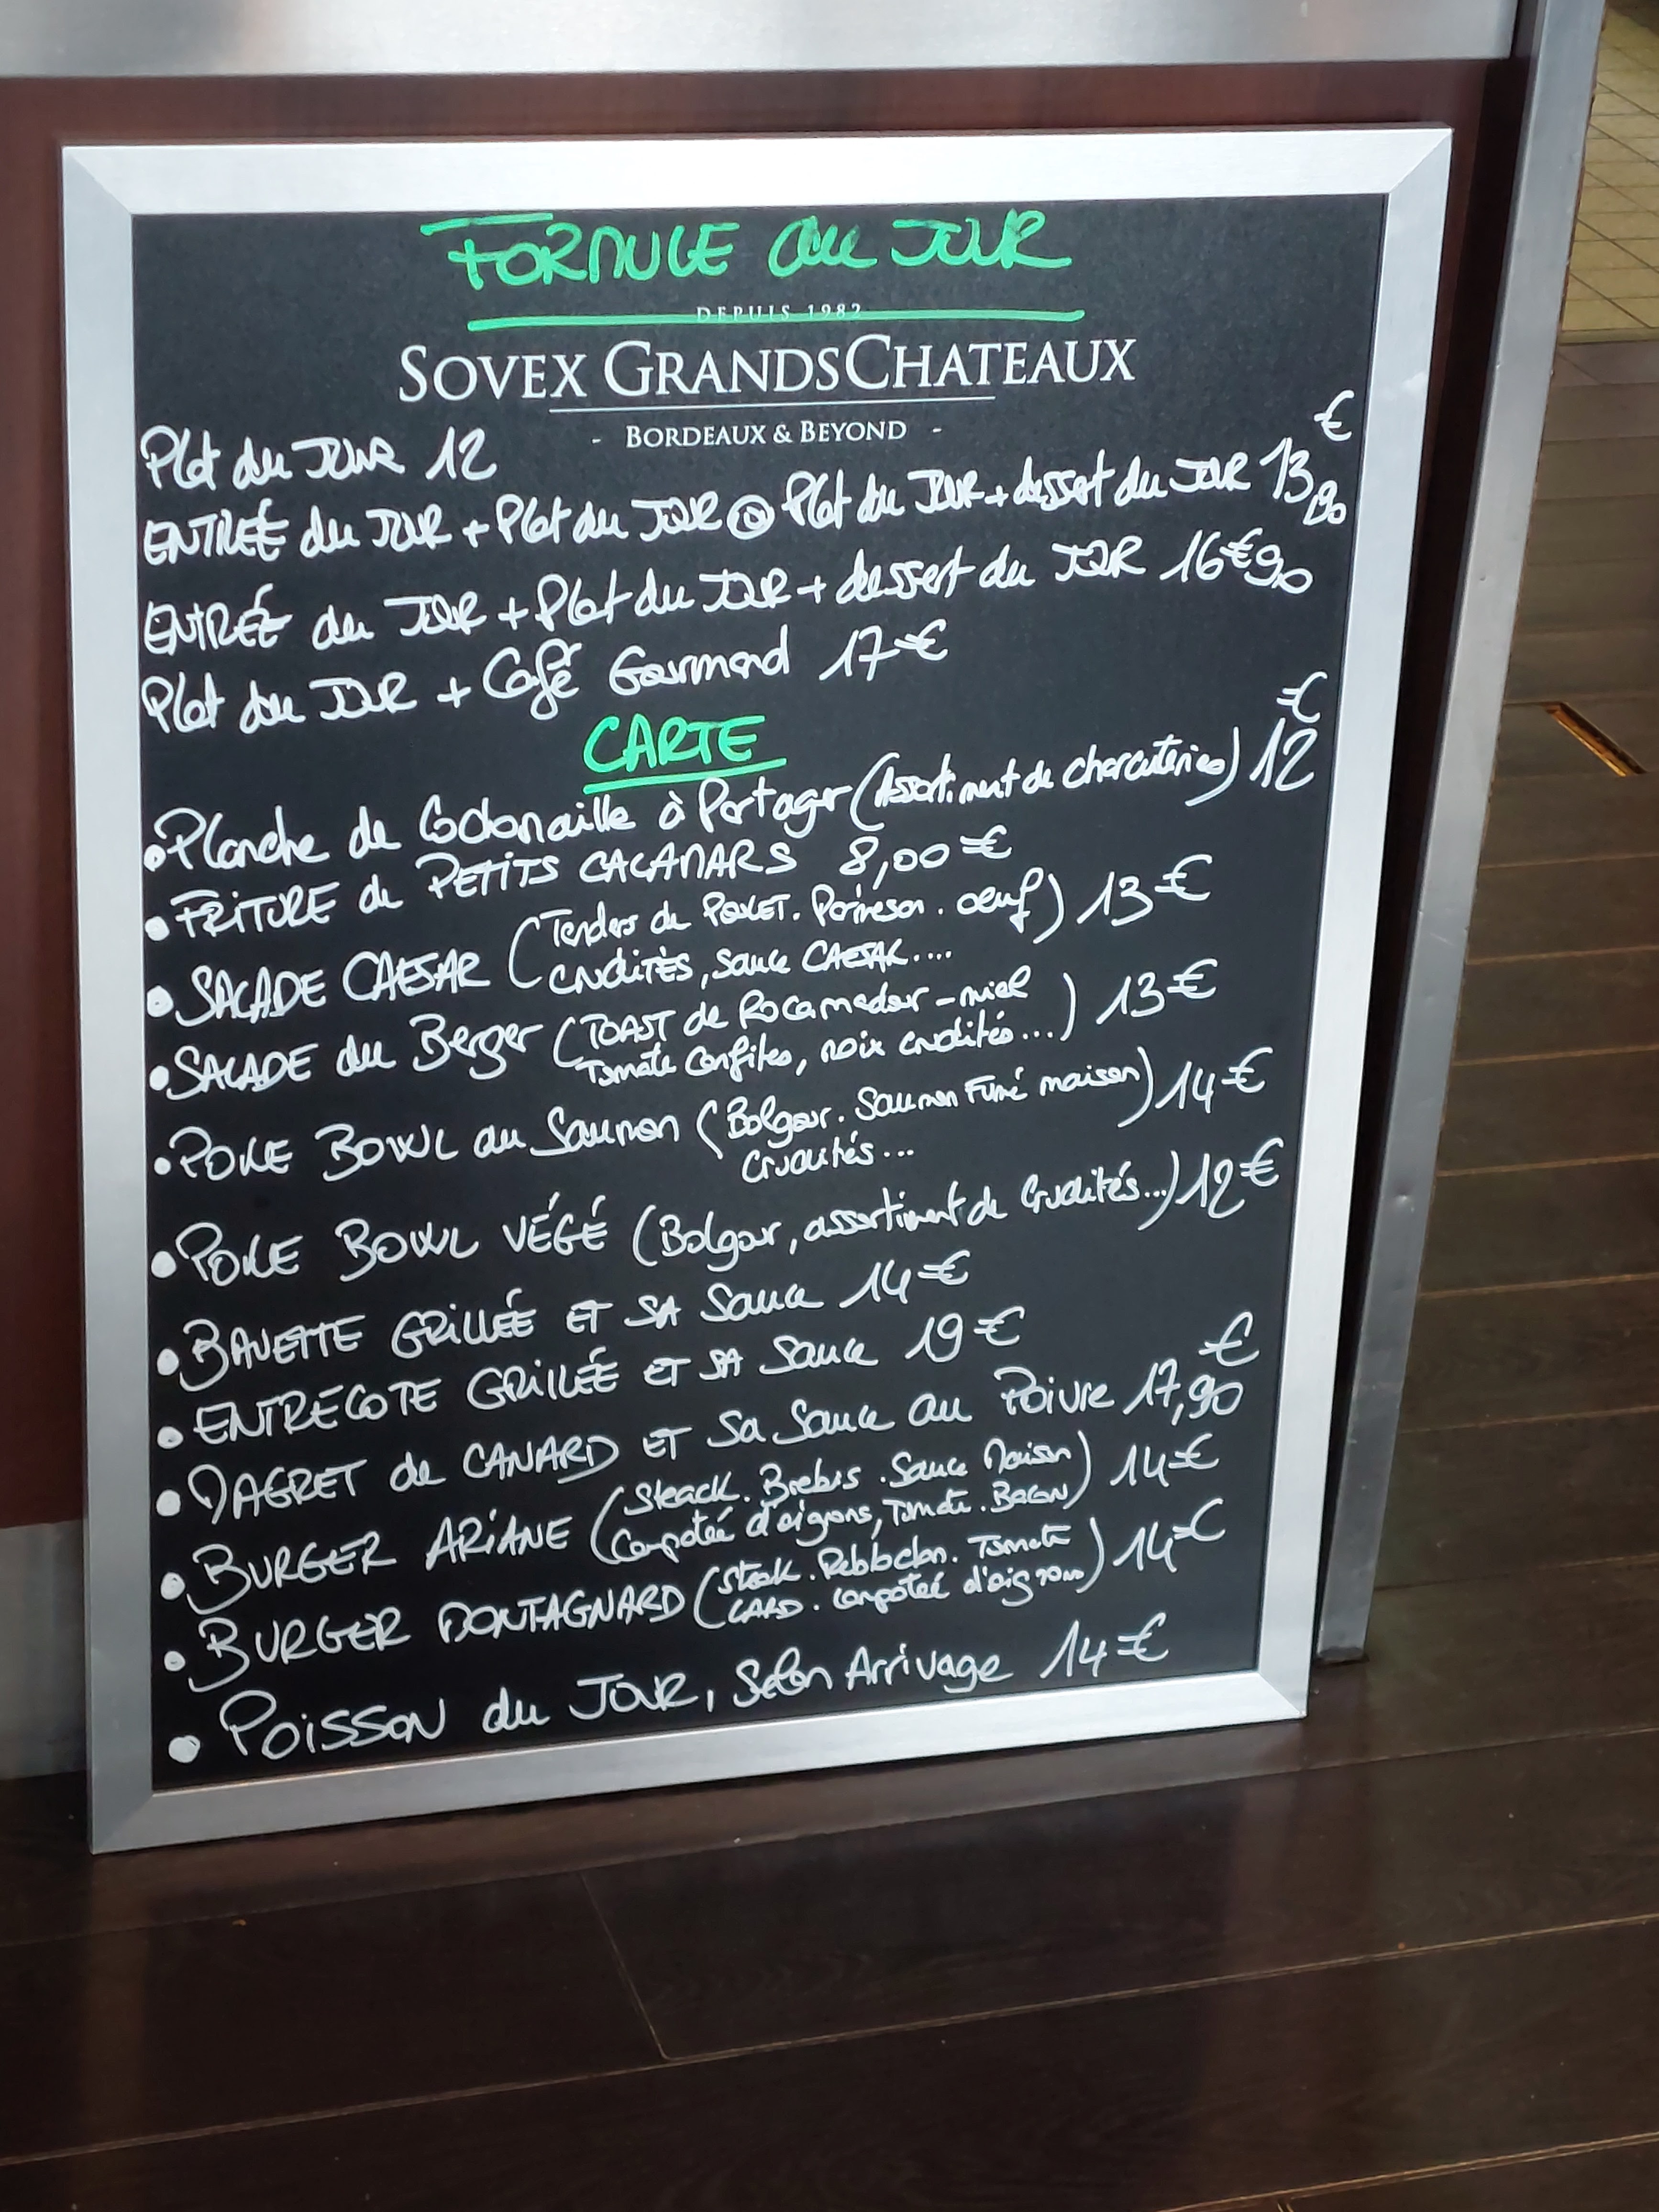 FORMULE du JOUR
DEPUIS 1982
SOVEX GRANDSCHATEAUX
- BORDEAUX & BEYOND -
Plat du JOUR 12
ENTRÉE du JOUR + Plat du JOUR ou Plat du JOUR + dessert du JOUR 13,90 €
ENTRÉE du JOUR + Plat du JOUR + dessert du JOUR 16€90
Plat du JOUR + Café Gourmand 17€
CARTE
• Planche de Cochonaille à Partager (Assortiment de charcuteries) 12 €
• FRITURE de PETITS CALAMARS 8,00€
• SALADE CAESAR (Tenders de POULET. Parmesan. oeuf) 13€
crudités, sauce CAESAR....
• SALADE du Berger (TOAST de Rocamadour - miel) 13€
Tomate Confites, noix crudités...
• POKE BOWL au Saumon (Bolgour. Saumon Fumé maison) 14€
Crudités...
• POKE BOWL VÉGÉ (Bolgour, assortiment de Crudités...) 12€
• BAVETTE GRILLÉE ET SA Sauce 14€
• ENTRECOTE GRILLÉE ET SA Sauce 19€
• MAGRET de CANARD ET Sa Sauce au Poivre 17,90 €
• BURGER ARIANE (Steack. Brebis. Sauce Maison) 14€
Compotée d'oignons, Tomate. Bacon
• BURGER MONTAGNARD (Steak. Reblochon. Tomate) 14€
LARD. compotée d'oignons
• POISSON du JOUR, Selon Arrivage 14€